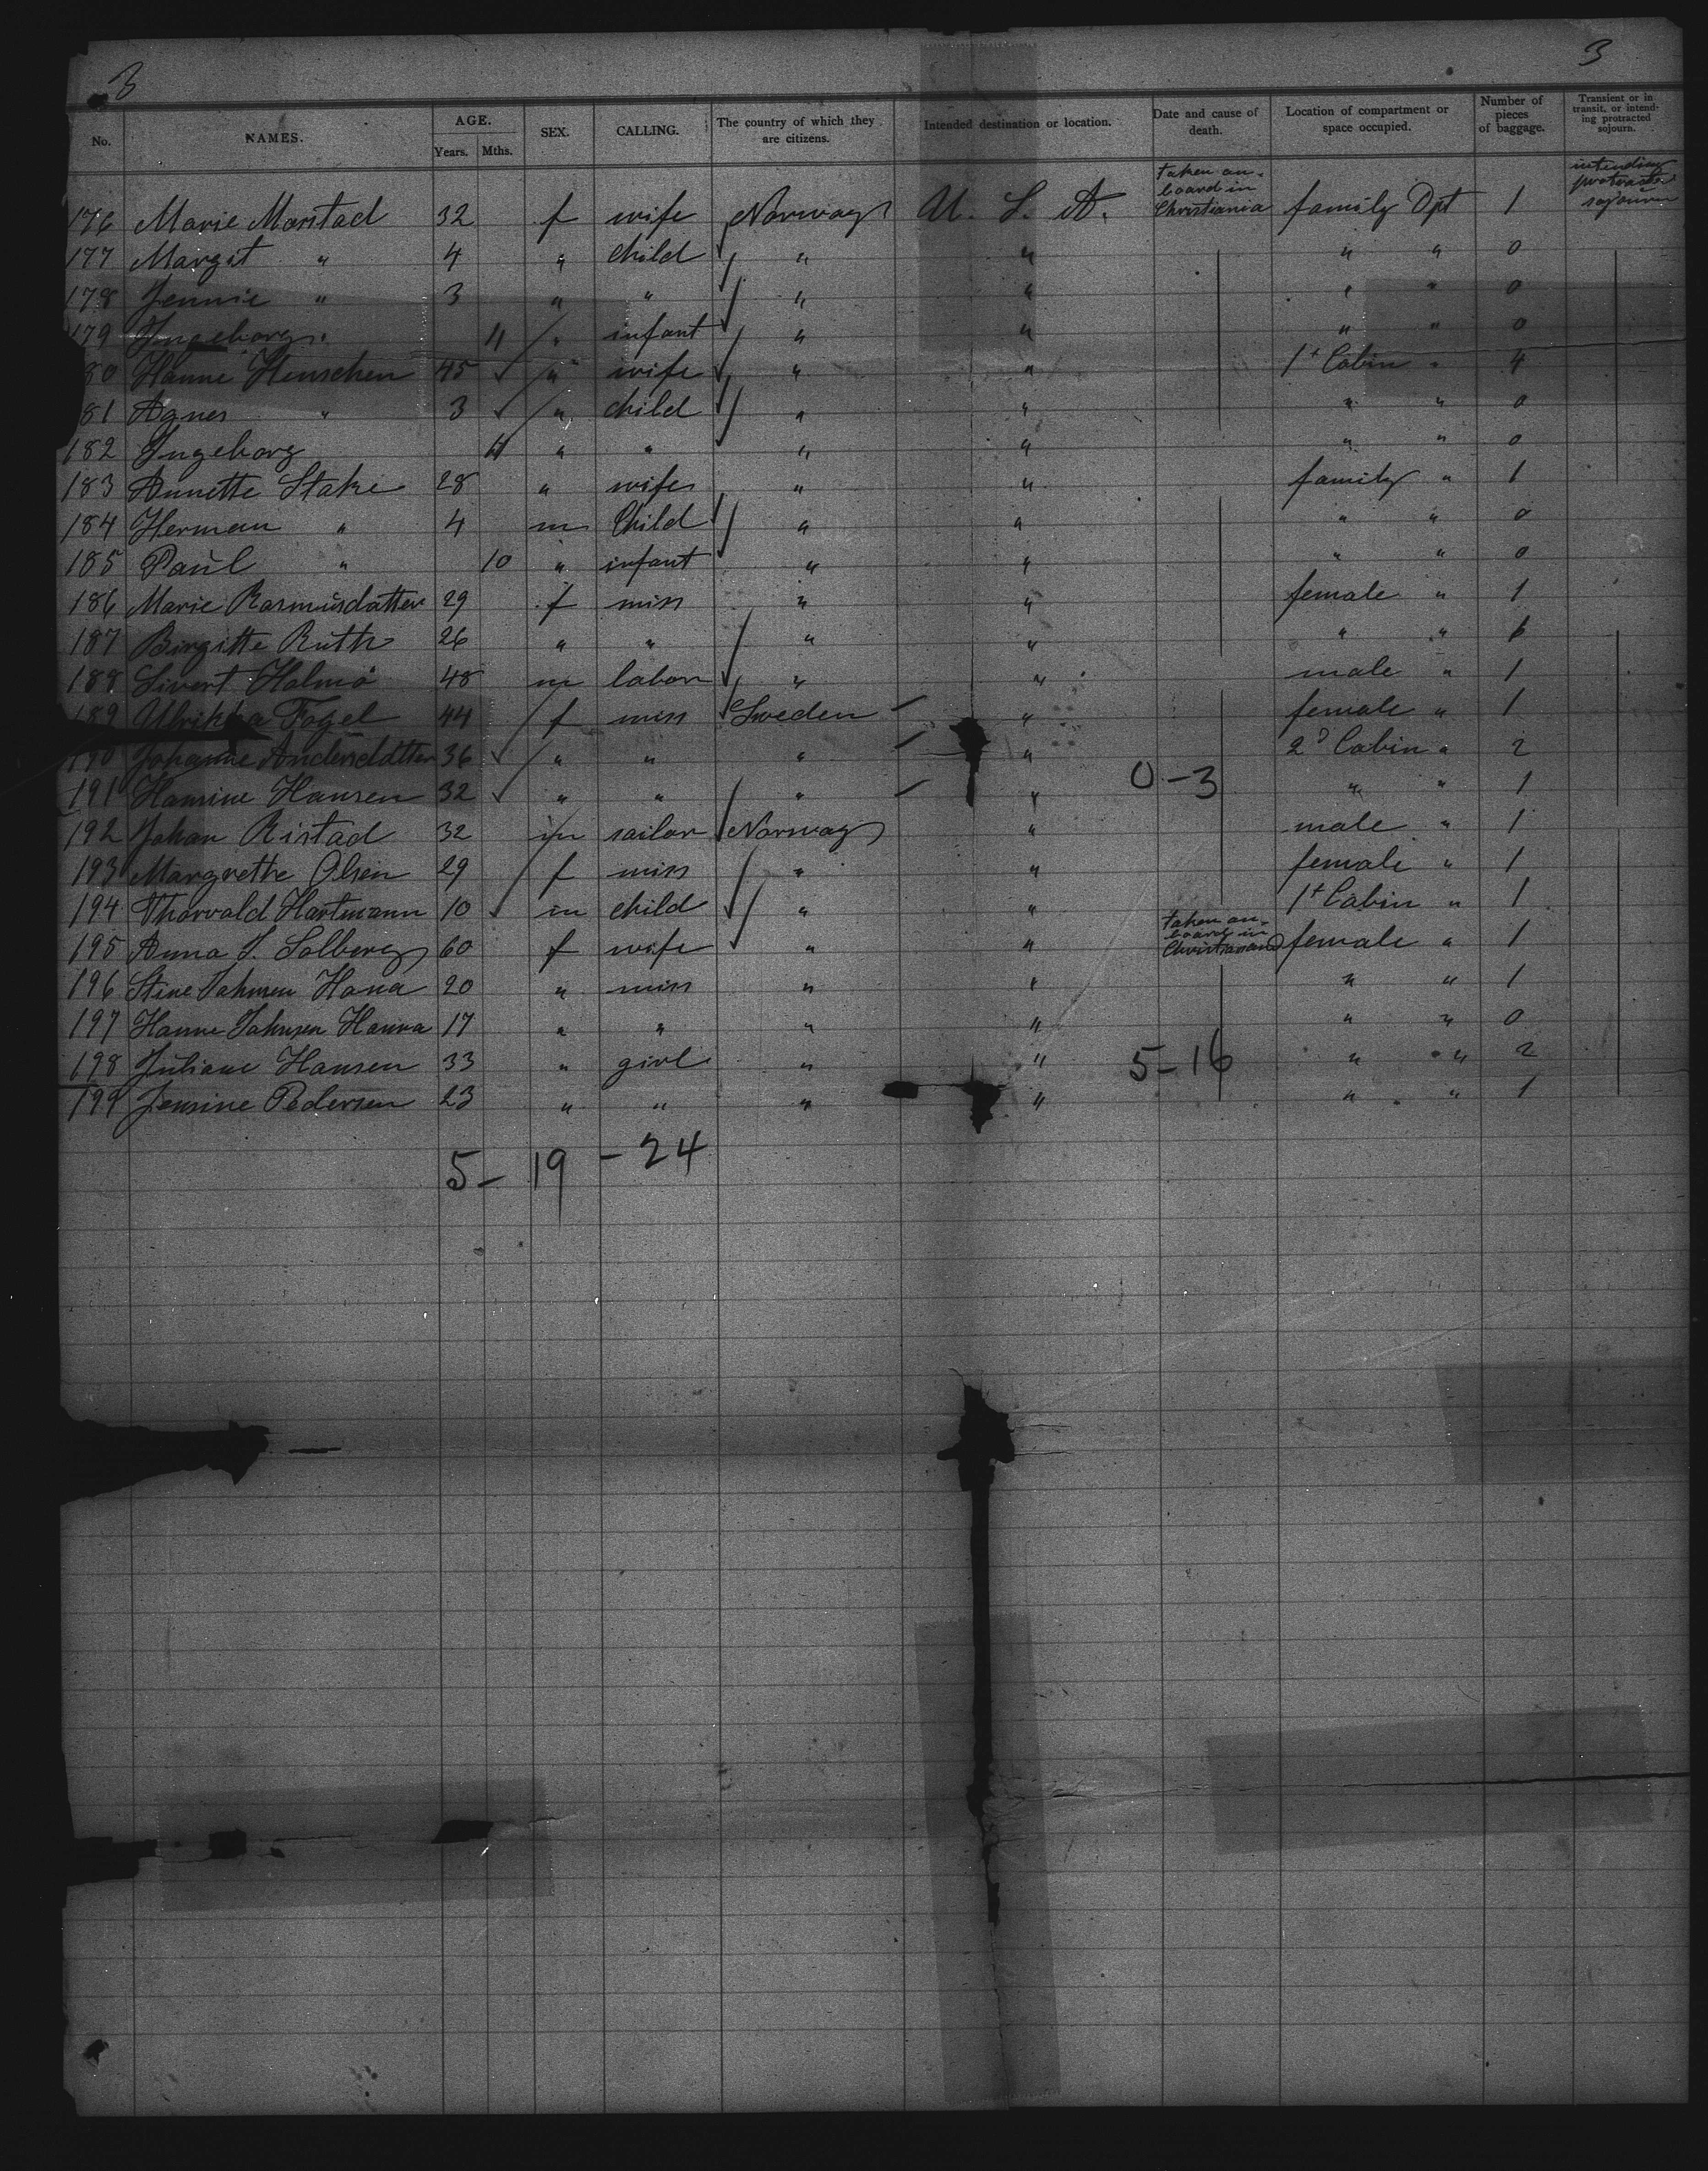 3 3
No. NAMES. AGE. Years. Mths. SEX. CALLING. The country of which they are citizens. Intended destination or location. Date and cause of death. Location of compartment or space occupied. Number of pieces of baggage. Transient or in transit, or intending protracted sojourn.
176 Marie Marstad 32 f wife Norway U. S. A. taken on board in Christiania family Dpt 1 intending protracted sojourn
177 Margit " 4 " child " " " " 0
178 Jennie " 3 " " " " " " 0
179 Ingeborg " 11 " infant " " " " 0
80 Hanne Henschen 45 " wife " " 1st Cabin " 4
81 Agnes " 3 " child " " " " 0
182 Ingeborg 11 " " " " " " 0
183 Annette Stake 28 " wife " " family " 1
184 Herman " 4 m Child " " " " 0
185 Paul " 10 " infant " " " " 0
186 Marie Rasmusdatter 29 f miss " " female " 1
187 Birgitte Ruth 26 " " " " " "
188 Sivert Holmö 48 m labor " " male " 1
189 Ulrikka Fogel 44 f miss Sweden " female " 1
190 Johanne Andersdatter 36 " " " " 2d Cabin " 2
191 Hansine Hansen 32 " " " " 0-3 " " 1
192 Johan Ristad 32 m sailor Norway " male " 1
193 Margrethe Olsen 29 f miss " " female " 1
194 Thorvald Hartmann 10 m child " " 1st Cabin " 1
195 Anna J. Solberg 60 f wife " " taken on board in Christiansand female " 1
196 Stine Jahnsen Hana 20 " miss " " " " 1
197 Hanne Jahnsen Hanna 17 " " " " " " 0
198 Juliane Hansen 33 " girl " " 5-16 " " 2
199 Jensine Pedersen 23 " " " " " " 1
5- 19 - 24